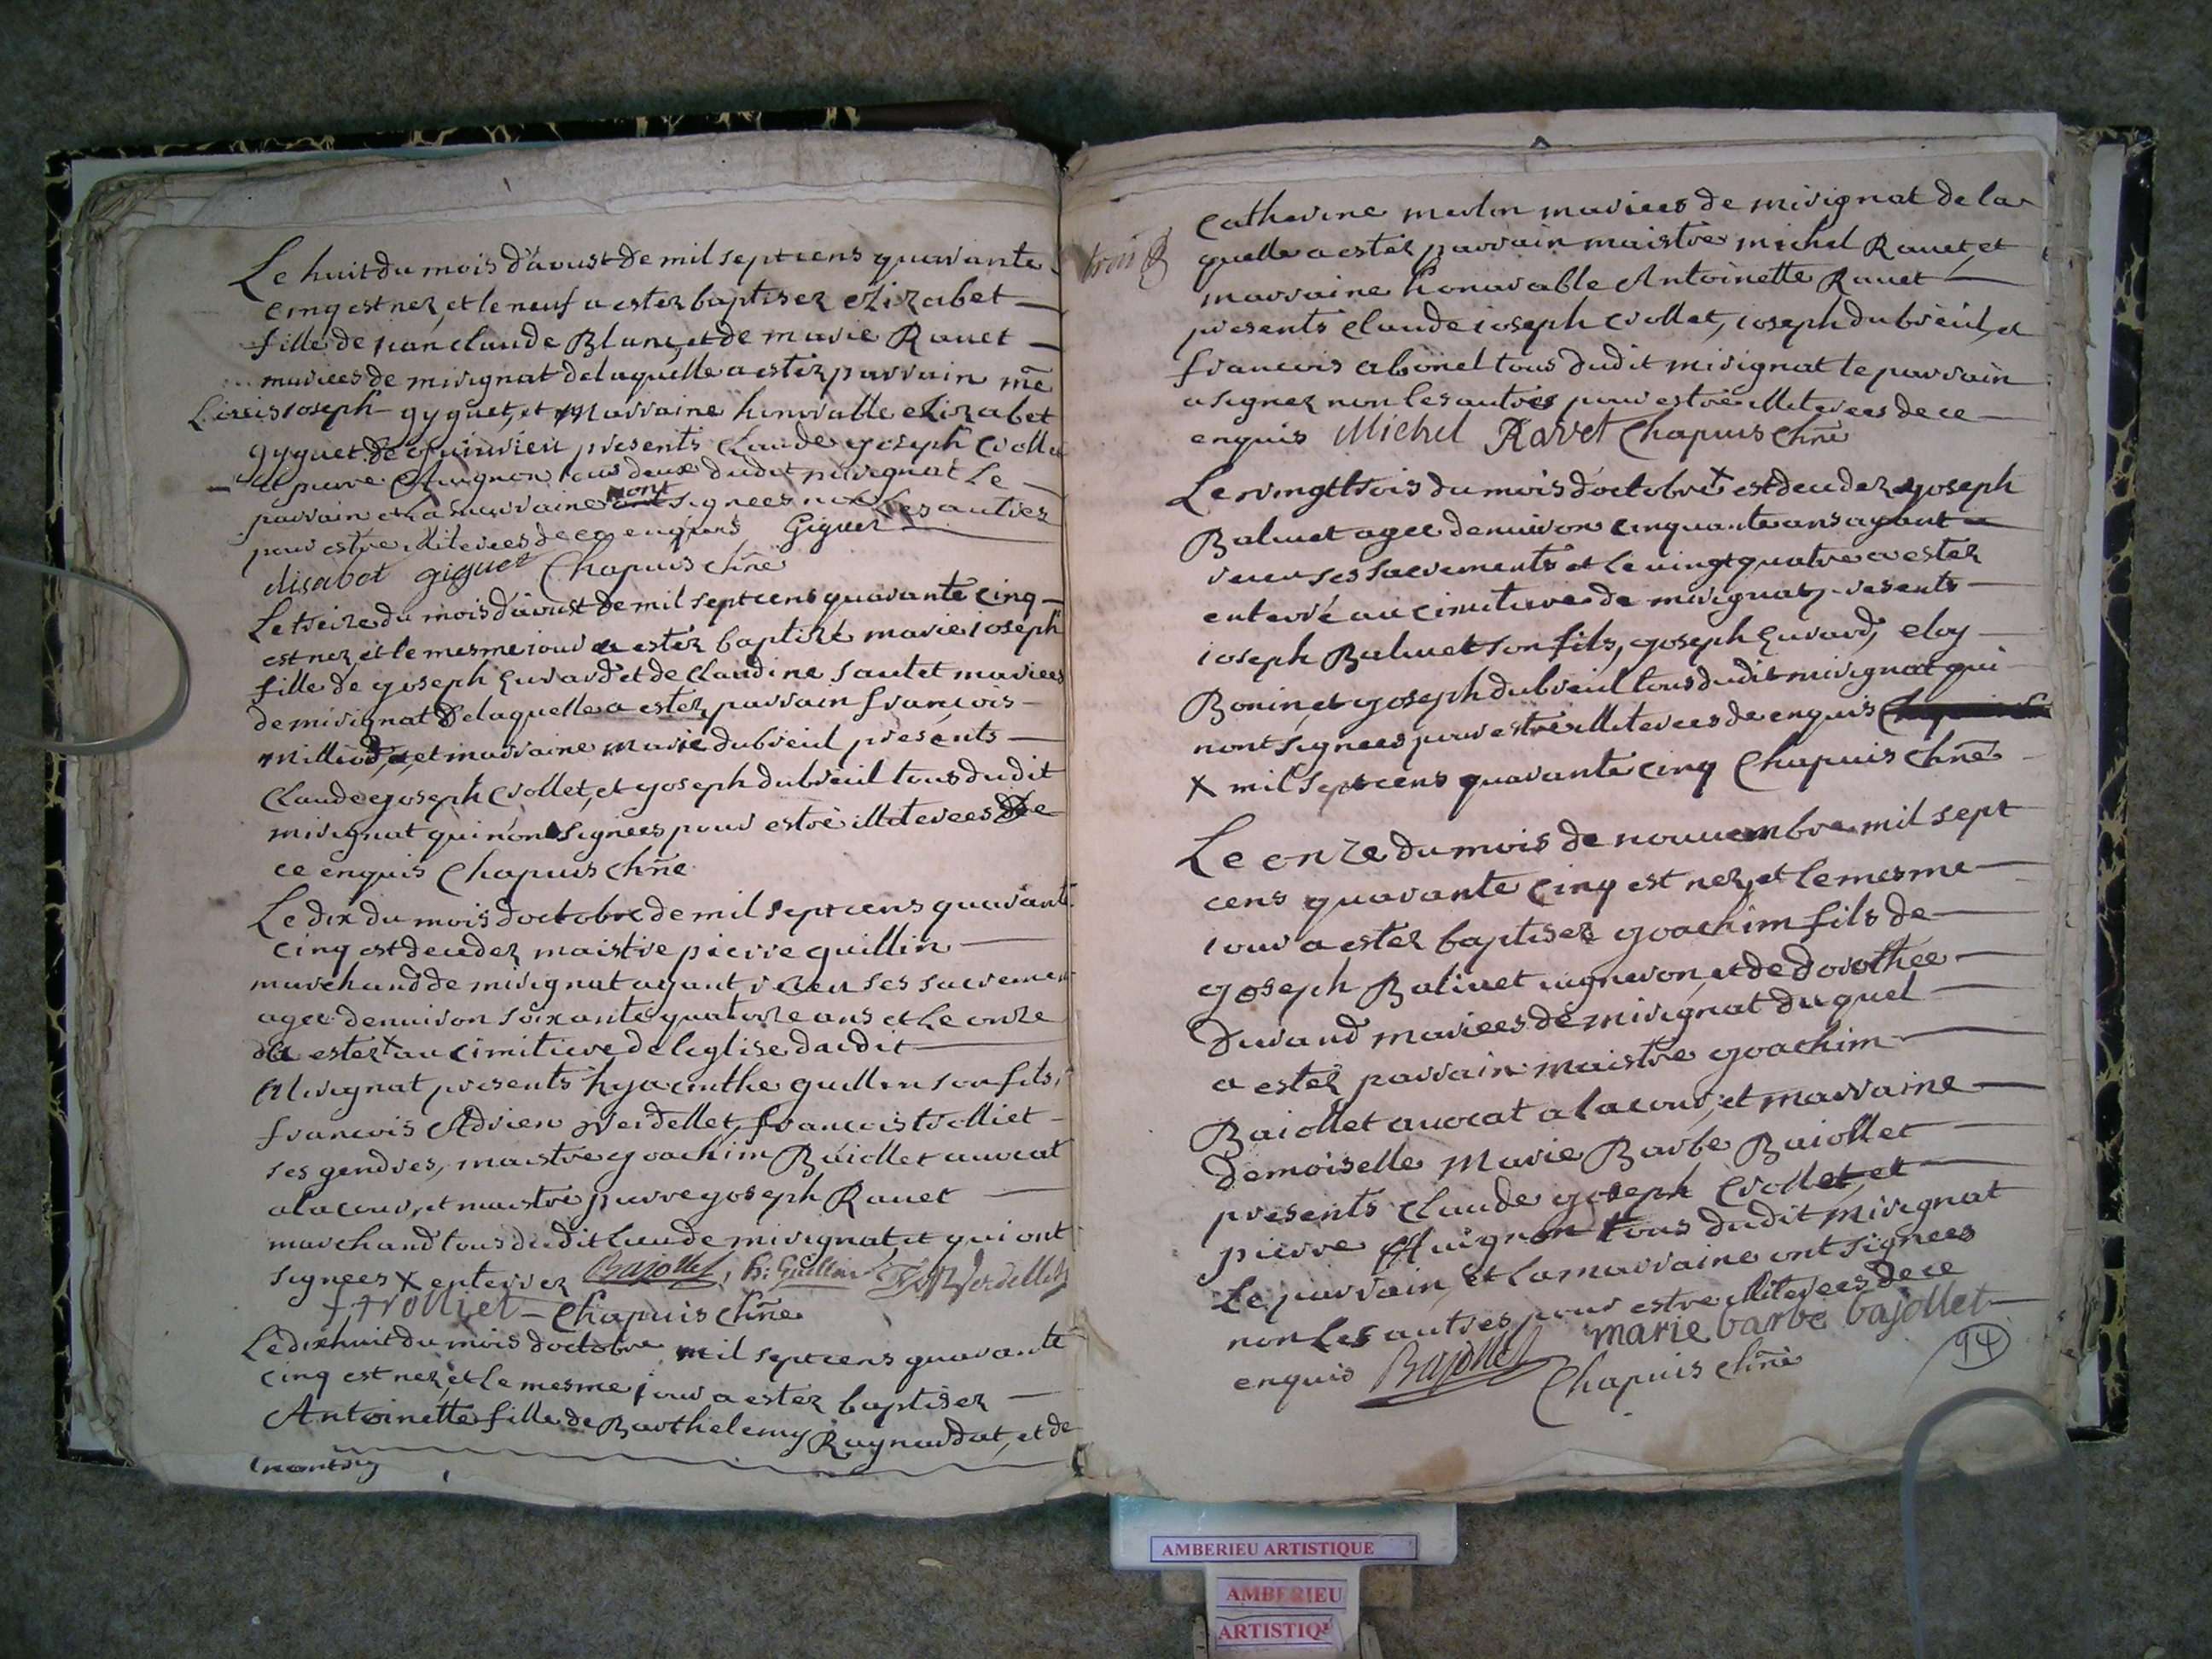 Le huit du mois d'aoust de mil sept cens quarante
cinq est nez, et le neuf a ester baptisez elizabet
fille de jean claude Blanc, et de marie Rauet
mariees de mirignat de laquelle a ester parrain me
Louis joseph gyguet, et Marraine honorable elizabet
gyguet de presents Claude goseph Crollet
et pierre tous deux dudit mirignat Le
parrain et la marraine ont signees non Les autres
pour estre illiterees de ce enquis Giguet
elisabet giguet Chapuis chne
Le treize du mois d'aoust de mil sept cens quarante cinq
est nez, et le mesme jour a ester baptizé marie joseph
fille de goseph Euvard et de Claudine sautet mariees
de mirignat De laquelle a ester parrain francois
milliod, et marraine marie dubreul presents
Claude goseph Crollet, et goseph dubreuil tous dudit
mirignat qui n'ont signees pour estre illiterees De
ce enquis Chapuis chne
Le dix du mois d'octobre de mil sept cens quarante
cinq est decedez maistre pierre guillin
marchand de mirignat ayant receu ses sacremen
agee denuiron soixante quatorze ans et le onze
a ester x au cimitiere de leglise dudit
Mirignat presents hyacinthe guillin son fils,
francois Adrien Verdellet, francois trolliet
ses gendres, maistre goachim Baiollet auocat
a la cour, et maistre pierre goseph Rauet
marchand tous dudit lieu de mirignat, et qui ont
signees x enterrez Bajollet, h: Guillin F A Verdellet
f trolliet Chapuis chne
Le dixhuit du mois doctobre mil sept cens quarante
cinq est nez, et le mesme jour a ester baptisez
Antoinette fille de Barthelemy Raynaudat, et de
Catherine merlin mariees de mirignat de la
quelle a ester parrain maistre michel Rauet, et
marraine honorable Antoinette Rauet
presents claude joseph crollet, joseph dubreuil, et
francois abonel tous dudit mirignat le parrain
a signez non les autres pour estre illiterees de ce
enquis Michel Ravet Chapuis chne
Le vingt trois du mois d'octobre x est decedez goseph
Baluet agee denuiron cinquante ans ayant
receu ses sacrements et le vingt quatre a ester
enterré au cimitiere de mirignat, presents
joseph Baluet son fils, goseph Euvard, eloy
Bonin, et goseph dubreuil tous dudit mirignat qui
n'ont signees pour estre illiterees de enquis
x mil sept cens quarante cinq Chapuis chne
Le onze du mois de nouuembre mil sept
cens quarante cinq est nez, et le mesme
jour a ester baptisez goachim fils de
goseph Baliuet uigneron, et de dorothee
Durand mariees de mirignat duquel
a ester parrain maistre goachim
Baiollet auocat a la cour, et marraine
demoiselle Marie Barbe Baiollet
presents Claude goseph Crollet, et
pierre tous dudit mirignat
Le parrain, et la marraine ont signees
non Les autres pour estre illiterees de ce
enquis Bajollet marie barbe bajollet
Chapuis chne
94
AMBERIEU ARTISTIQUE
AMBERIEU
ARTISTIQ